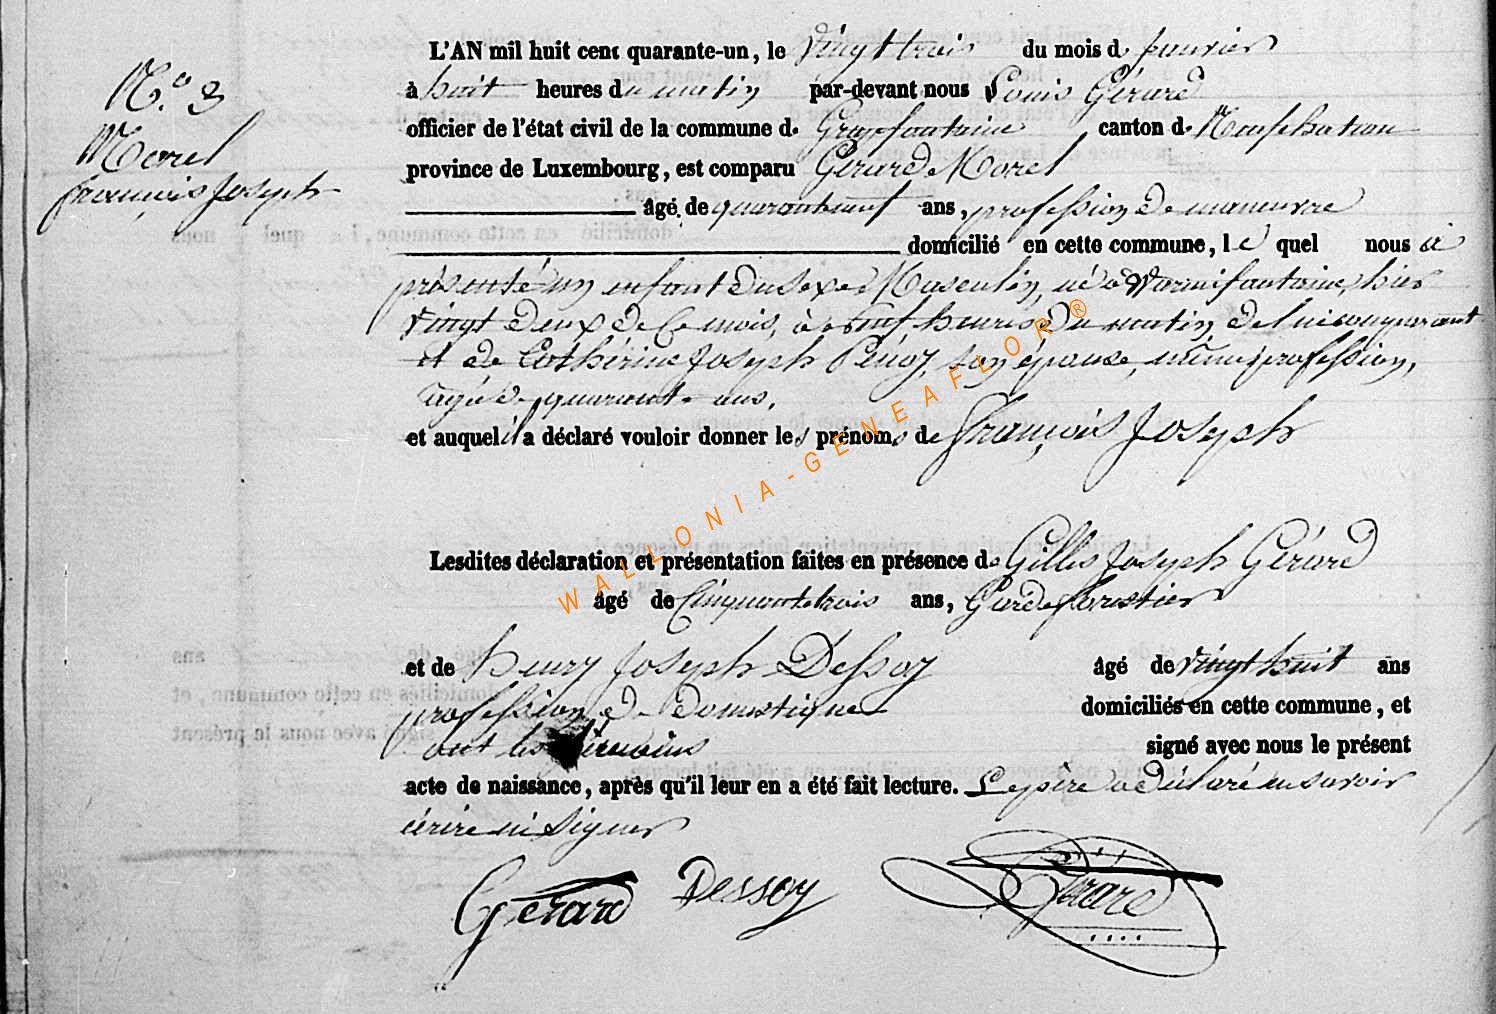 N.º 3
Morel
françois Joseph
L'AN mil huit cent quarante-un, le vingt trois du mois de janvier
à huit heures du matin par-devant nous Louis Gérard
officier de l'état civil de la commune de Grapfontaine canton de Neufchateau
province de Luxembourg, est comparu Gérard Morel
âgé de quarante neuf ans, profession de manœuvre
domicilié en cette commune, le quel nous a
présenté un enfant du sexe Masculin, né à Warmifontaine, hier
vingt deux de ce mois, à neuf heures du matin de lui comparant
et de Cathérine Joseph Penoy, son épouse, même profession,
agée de quarante ans,
et auquel il a déclaré vouloir donner les prénoms de François Joseph
Lesdites déclaration et présentation faites en présence de Gilles Joseph Gérard
âgé de Cinquante trois ans, Garde forestier
et de henry Joseph Dessoy âgé de vingt huit ans
profession de domestique domiciliés en cette commune, et
ont les témoins signé avec nous le présent
acte de naissance, après qu'il leur en a été fait lecture. Le père a déclaré ne savoir
écrire ni signer
Gérard Dessoy Gérard
WALLONIA-GENEAFLOR®